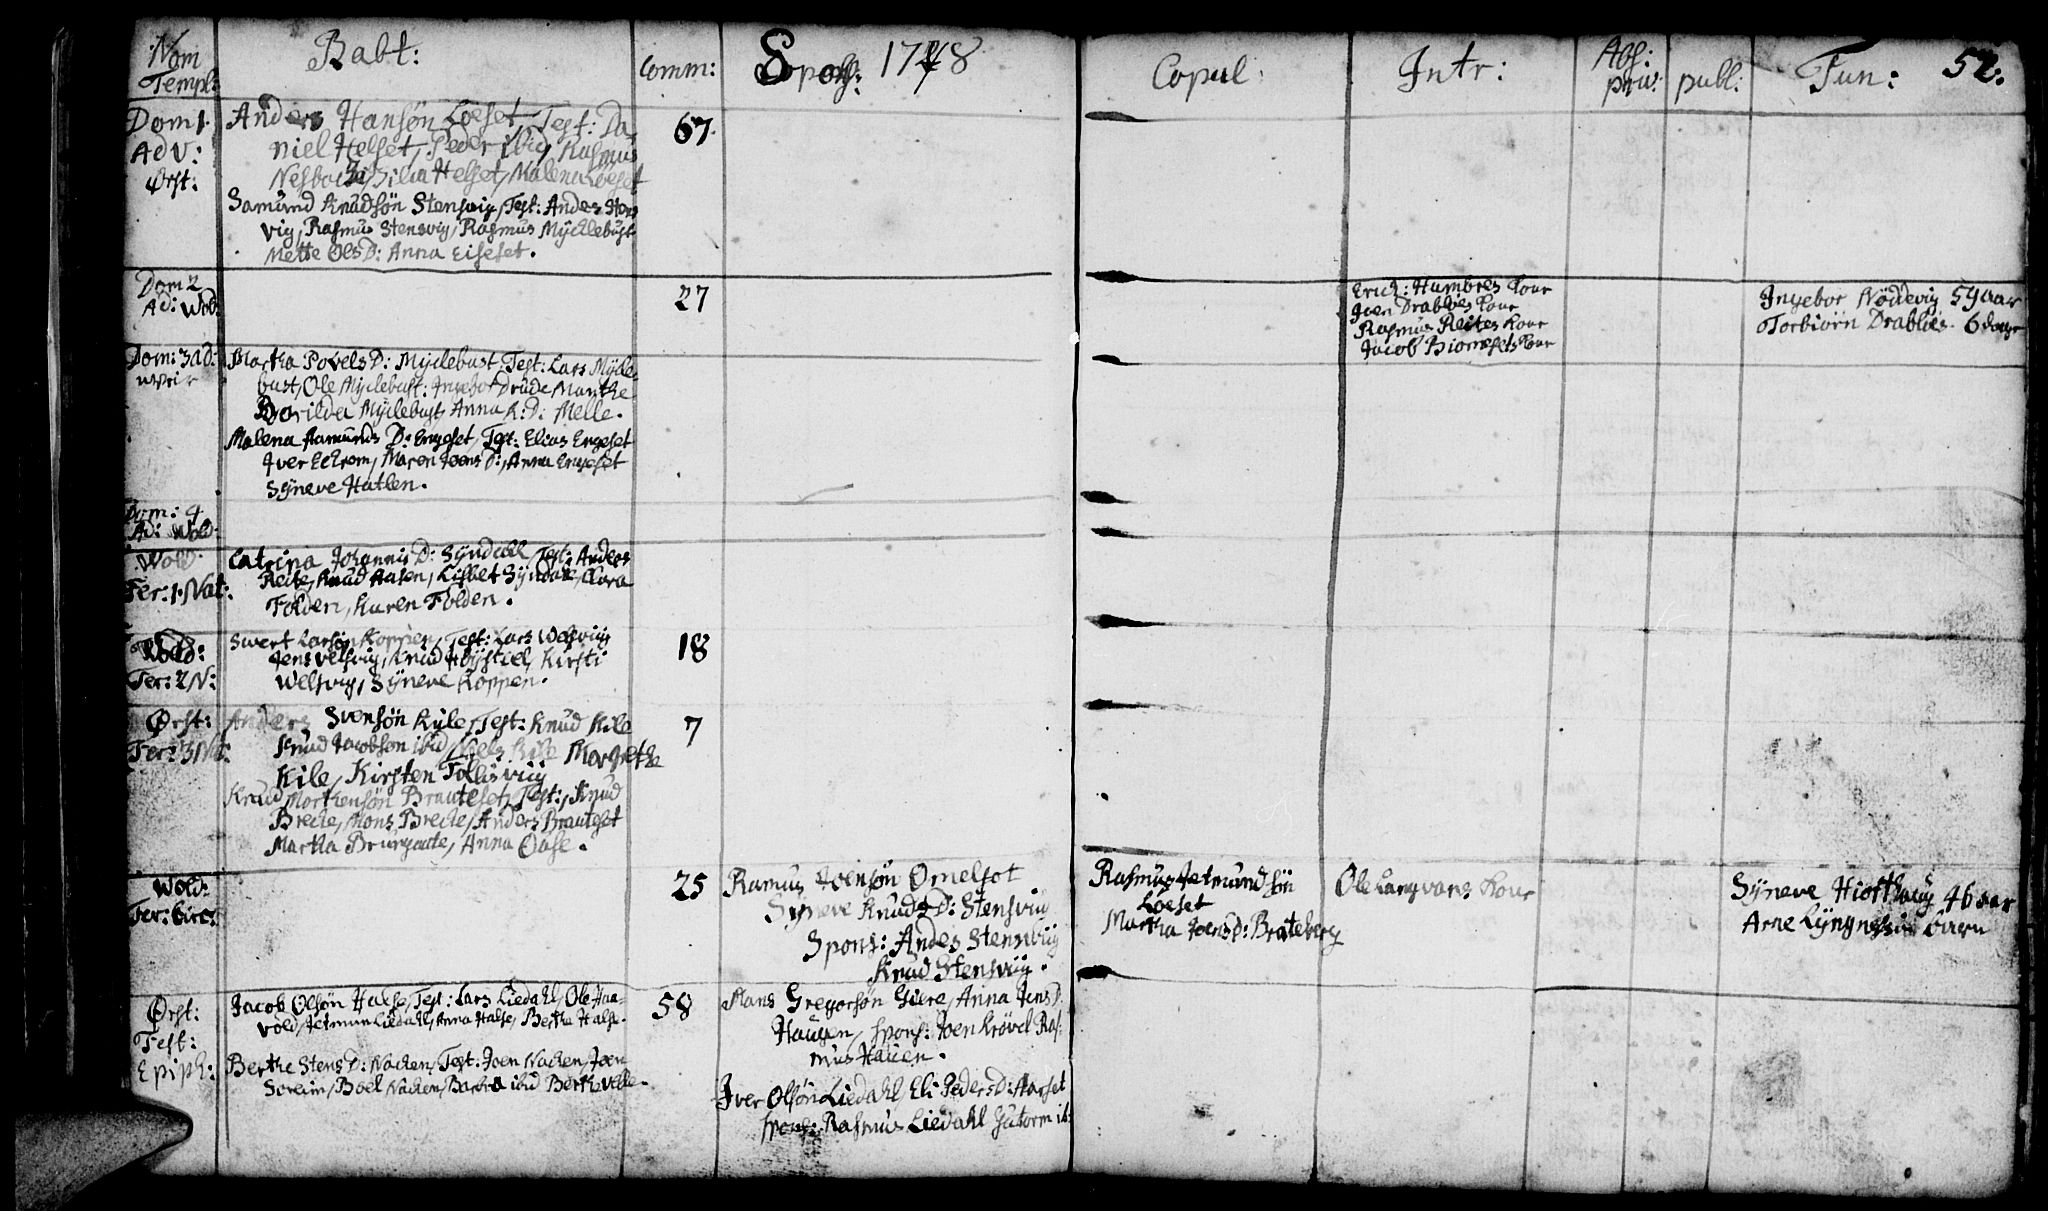 Nom Templ: Babt: Comm: Spons: 1748 Copul: Intr: Abs: priv: publ: Fun: 52.
Dom 1. Adv: Ørst:
Anders Hansøn Løeset, Test: Da
niel Helset, Peder ibid, Rasmus
Helset, Malena Løeset
67.
Samund Knudsøn Stensvig, Test: Anders Stens
vig, Rasmus Stensvig, Rasmus Mÿchlebust
Mette OlsD: Anna Eiseset.
Dom 2 Ad: Wold
27
Erich: Humbres Kone
Joen Drabløes Kone
Rasmus Reites Kone
Jacob Kone
Ingebor Nøddevig 59 aar
Torbiørn Drabløes 6 dage
Dom: 3 Ad:
Martha PovelsD: Mÿclebust, Test: Lars Mÿcle
bust, Ole Mÿclebust: Drude Manthe
Mÿclebust, Anna K:D: Melle.
Malena AamundsD: Engeset, Test: Elias Engeset
Iver Echrem, Maren JoensD:, Anna Engeset
Sÿneve Hatlen.
Dom: 4
Ad: Wold:
Wold:
Fer: 1. Nat:
Catrina JohannisD: Sÿndahl, Test: Anders
Reite, Knud Aasen, Lisbet Sÿndal, Clara
Folden, Karen Folden.
Wold:
Fer: 2 N:
Sivert Larsøn Koppen, Test: Lars Welsviig
Jens Velsvig, Knud Høÿstiel, Kirsti
Welsvig, Sÿneve Koppen.
18
Ørst:
Fer: 3 Nat:
Anders Svensøn Kile, Test: Knud Kile
Knud Jacobsøn ibid, Niels Kile Margrethe
Kile, Kirsten Follisviig
7
Knud Morthensøn Brauteset, Test:, Knud
Breche, Mons Breche, Anders Brauteset
Martha Brungaate, Anna Øase.
Wold:
Fer: Circ:
25
Ramus Joensøn Ørnelsot
Sÿneve KnudsD: Stensviig
Spons: Anders Stensviig
Knud Stensviig.
Rasmus Jetmundsøn
Løeset
Martha JoensD: Brateberg
Ole Langvans Kone
Sÿneve Hiorthaug 46 aar
Arne barn
Ørst:
Fest:
Epiph:
Jacob Olsøn Halse, Test: Lars Liedahl, Ole Haa
vold, Jetmun Liedahl, Anna Halse, Berthe Halse.
58
Berthe StensD: Nachen, Test: Joen Nachen, Joen
Søreim, Boel Nachen, Barbra ibid Berthe Velle.
Mans Gregorsøn Giere, Anna JensD.
Haugen, spons: Joen Krøvel Ras:
mus Hauen.
Iver Olsøn Liedahl, Eli PedersD: Aarset
spons: Rasmus Liedahl Gutorm ib: